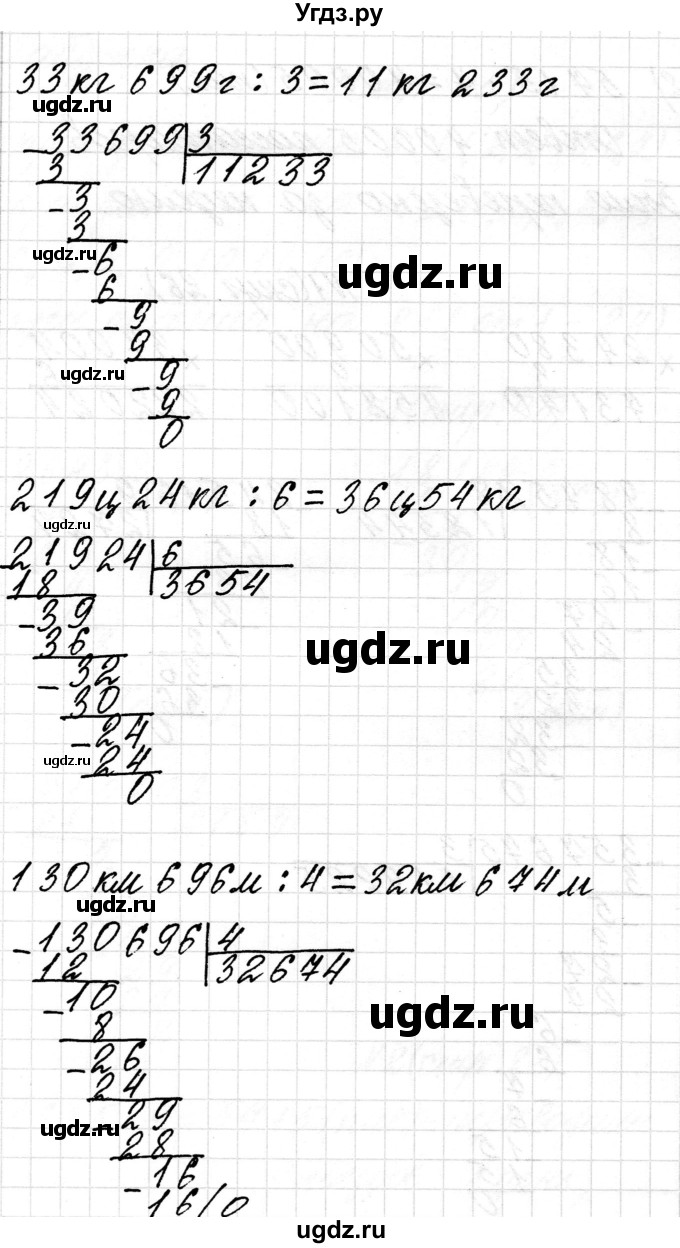 Угдз.ру
33кг 699г : 3 = 11кг 233г
ugdz.ru
- 33699 | 3
3 11233
- 3
3
ugdz.ru
- 6
ugdz.ru
6
- 9
9
ugdz.ru
- 9
9
0
219ц 24кг : 6 = 36ц 54кг
ugdz.ru
- 21924 | 6
18 3654
- 39
36
ugdz.ru
- 32
30
- 24
ugdz.ru
24
0
130км 696м : 4 = 32км 674м
ugdz.ru
- 130696 | 4
12 32674
- 10
8
ugdz.ru
- 26
24
ugdz.ru
- 29
28
- 16
- 16/0
ugdz.ru